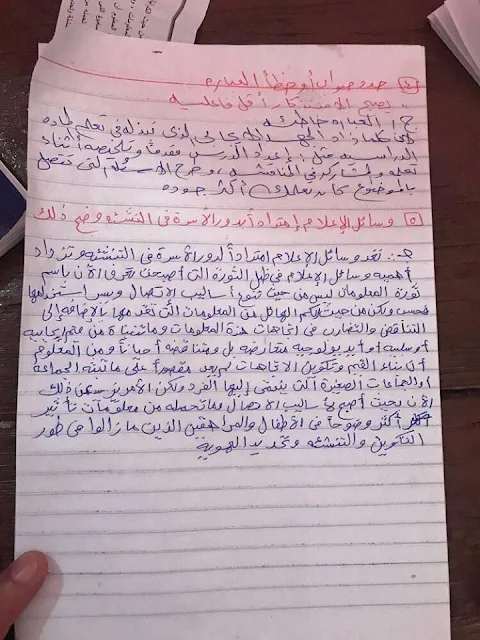 ④ حدد صواب أو خطأ العبارة
يصبح الاستذكار أقل فاعلية
ج/ العبارة خاطئة
لأن كلما زاد الجهد الايجابي الذي تبذله في تعلم المادة
الدراسية مثل: إعداد الدرس مقدماً وتلخيصه أثناء
تعلمه والمشاركة في المناقشة، وطرح الاسئلة التي تتصل
بالموضوع كان تعلمك أكثر جودة
⑤ وسائل الإعلام إمتداد أ لدور الأسرة في التنشئة وضح ذلك
جـ: تعد وسائل الإعلام امتداداً لدور الأسرة في التنشئة وتزداد
أهمية وسائل الإعلام في ظل الثورة التي أصبحت تعرف الأن باسم
ثورة المعلومات ليس من حيث تنوع أساليب الاتصال ويسر استخدامها
فحسب ولكن من حيث الكم الهائل من المعلومات التي تقدمها بالإضافة إلى
التناقض والتضارب في اتجاهات هذة المعلومات وما تتبناة من قيم إيجابية
أو سلبية أو أيديولوجية متعارضة بل ومتناقضة أحياناً ومن المعلوم
أن بناء القيم وتكوين الاتجاهات لم يعد مقصوراً على ما تبثه الجماعة
والجماعات الصغيرة التي ينتمي إليها الفرد ولكن الأمر يزيد عن ذلك
الأن بحيث أصبح أساليب الاتصال وما تحمله من معلومات تأثير
أكثر وضوحاً في الأطفال والمراهقين الذين ما زالوا في طور
التكوين والتنشئه وتحديد الهوية